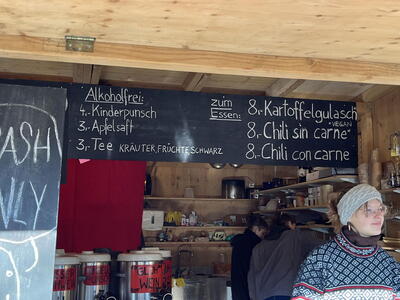 Alkoholfrei:
4,- Kinderpunsch
3,- Apfelsaft
3,- Tee KRÄUTER, FRÜCHTE SCHWARZ
zum
Essen:
8,- Kartoffelgulasch
*VEGAN
8,- Chili sin carne*
8,- Chili con carne
ASH
NLY